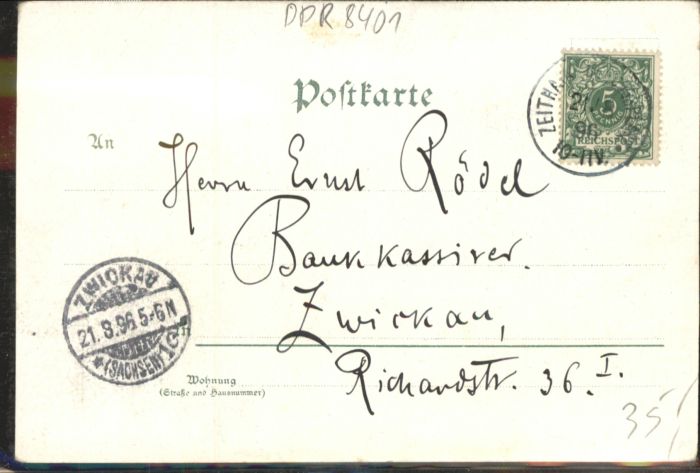 DPR 8401
Postkarte
5
PFENNIG
REICHSPOST
ZEITHAIN
21
96
10-11V.
An
Herrn Ernst Rödel
Bankkassirer.
Zwickau,
ZWICKAU
21.8.96 5-6N
(SACHSEN)
Wohnung
(Straße und Hausnummer)
Richardstr. 36. I.
35